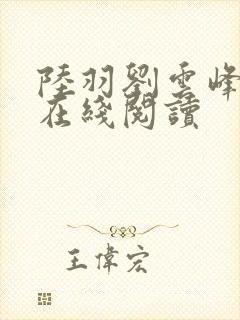 陸羽劉雲峰
在綫閱讀
王偉宏